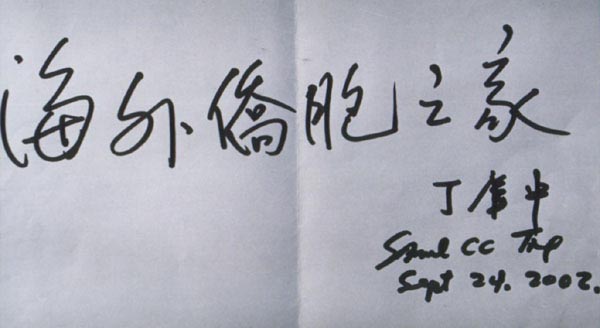 海外僑胞之家
丁肇中
Samuel CC Ting
Sept 24. 2002.